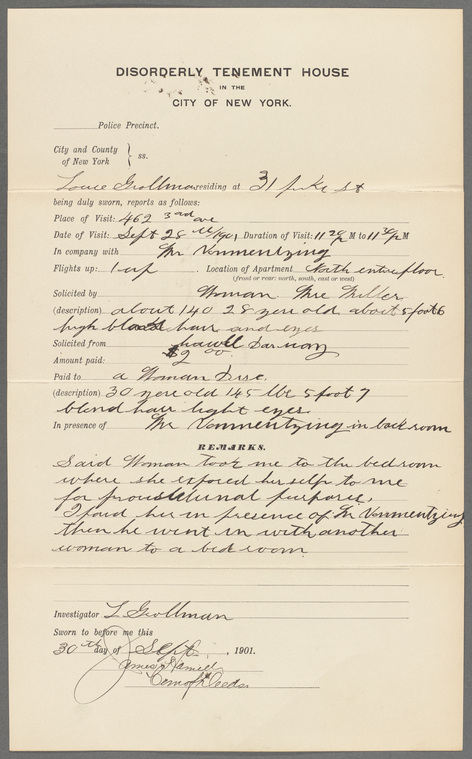 DISORDERLY TENEMENT HOUSE
IN THE
CITY OF NEW YORK.
Police Precinct.
City and County
of New York } ss.
Louis Grollman residing at 31 pike st
being duly sworn, reports as follows:
Place of Visit: 462 3rd ave
Date of Visit: Sept 28th/1901 Duration of Visit: 11 20 P M to 11 30 P M
In company with Mr Vonmentzing
Flights up: 1 up. Location of Apartment North entire floor
(front or rear: north, south, east or west)
Solicited by Woman Mrs Miller
(description) about 140 28 year old about 5 foot 6
high black hair and eyes
Solicited from
Amount paid: $2 00
Paid to a Woman
(description) 30 year old 145 lbs 5 foot 7
blend hair light eyes.
In presence of Mr Vonmentzing in back room
REMARKS.
Said Woman took me to the bed room
where she exposed her self to me
for purposes.
I paid her in presence of Mr Vonmentzing
then he went in with another
woman to a bed room
Investigator L Grollman
Sworn to before me this
30th day of Sept., 1901.
Com of Deeds